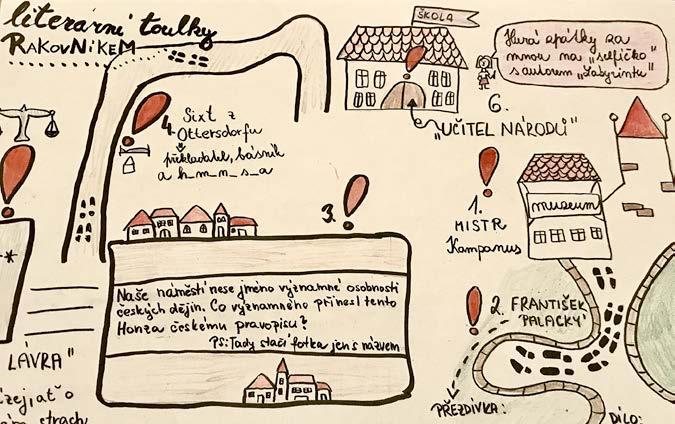 literární toulky
RAKOVNÍKEM
ŠKOLA
Hurá zpátky za
mnou na „selfíčko"
s autorem „Labyrintu"
6.
„UČITEL NÁRODŮ"
4. Sixt z
Ottersdorfu
překladatel, básník
a h_m_n_s_a
1.
MISTR
Kampanus
muzeum
3.
Naše náměstí nese jméno významné osobnosti
českých dějin. Co významného přinesl tento
Honza českému pravopisu?
PS: Tady stačí fotka jen s názvem
2. FRANTIŠEK
PALACKÝ
PŘEZDÍVKA:
DÍLO:
LÁVRA"
zej, ať o
strach